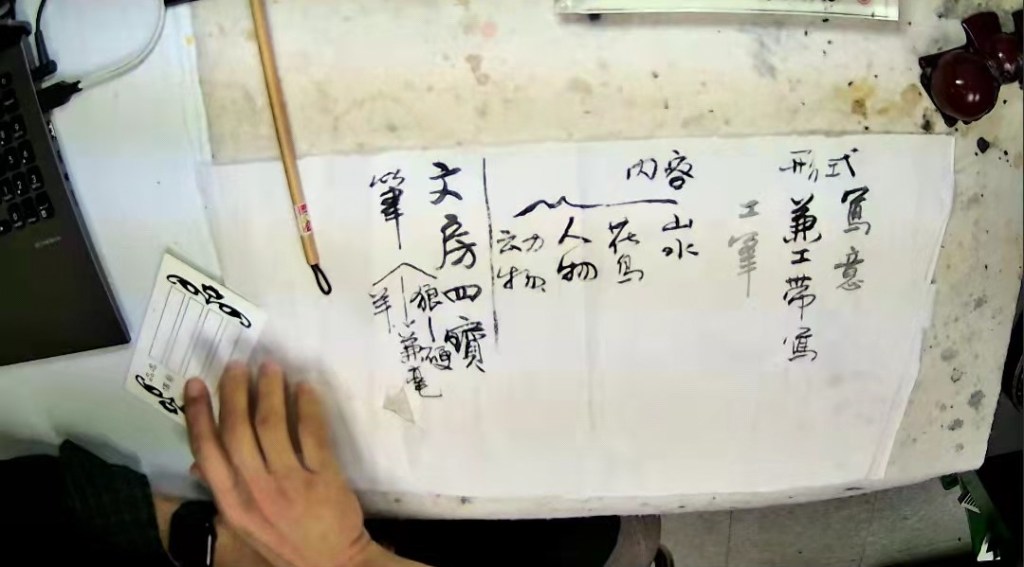 形式
寫意
兼工帶寫
工筆
內容
山水
花鳥
人物
动物
文房四寶
筆
狼
硬
羊
兼毫